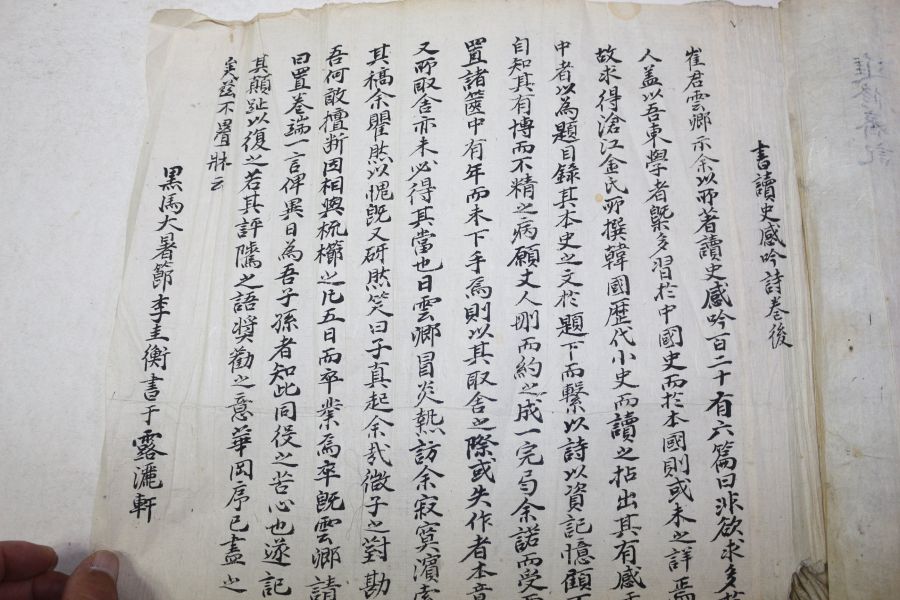 書讀史感吟詩巻後
崔君雲卿示余以所著讀史感吟百二十有六篇曰非欲求多
人盖以吾東學者槩多習於中國史而於本國則或未之詳焉
故求得滄江金氏所撰韓國歷代小史而讀之拈出其有感
中者以為題目錄其本史之文於題下而繫以詩以資記憶顧
自知其有博而不精之病願丈人刪而約之成一完勻余諾而受
置諸篋中有年而未下手焉則以其取舍之際或失作者本意
又所取舍亦未必得其當也日雲卿冒炎熱訪余寂寞濱索
其稿余瞿然以愧旣又硏然笑曰子真起余哉微子之對勘
吾何敢擅斷因相與梳櫛之凡五日而卒業焉卒旣雲卿請
曰置卷端一言俾異日為吾子孫者知此同役之苦心也遂記
其顚趾以復之若其評隲之語奬勸之意華岡序已盡之
矣玆不疊牀云
黑馬大暑節李圭衡書于露灑軒